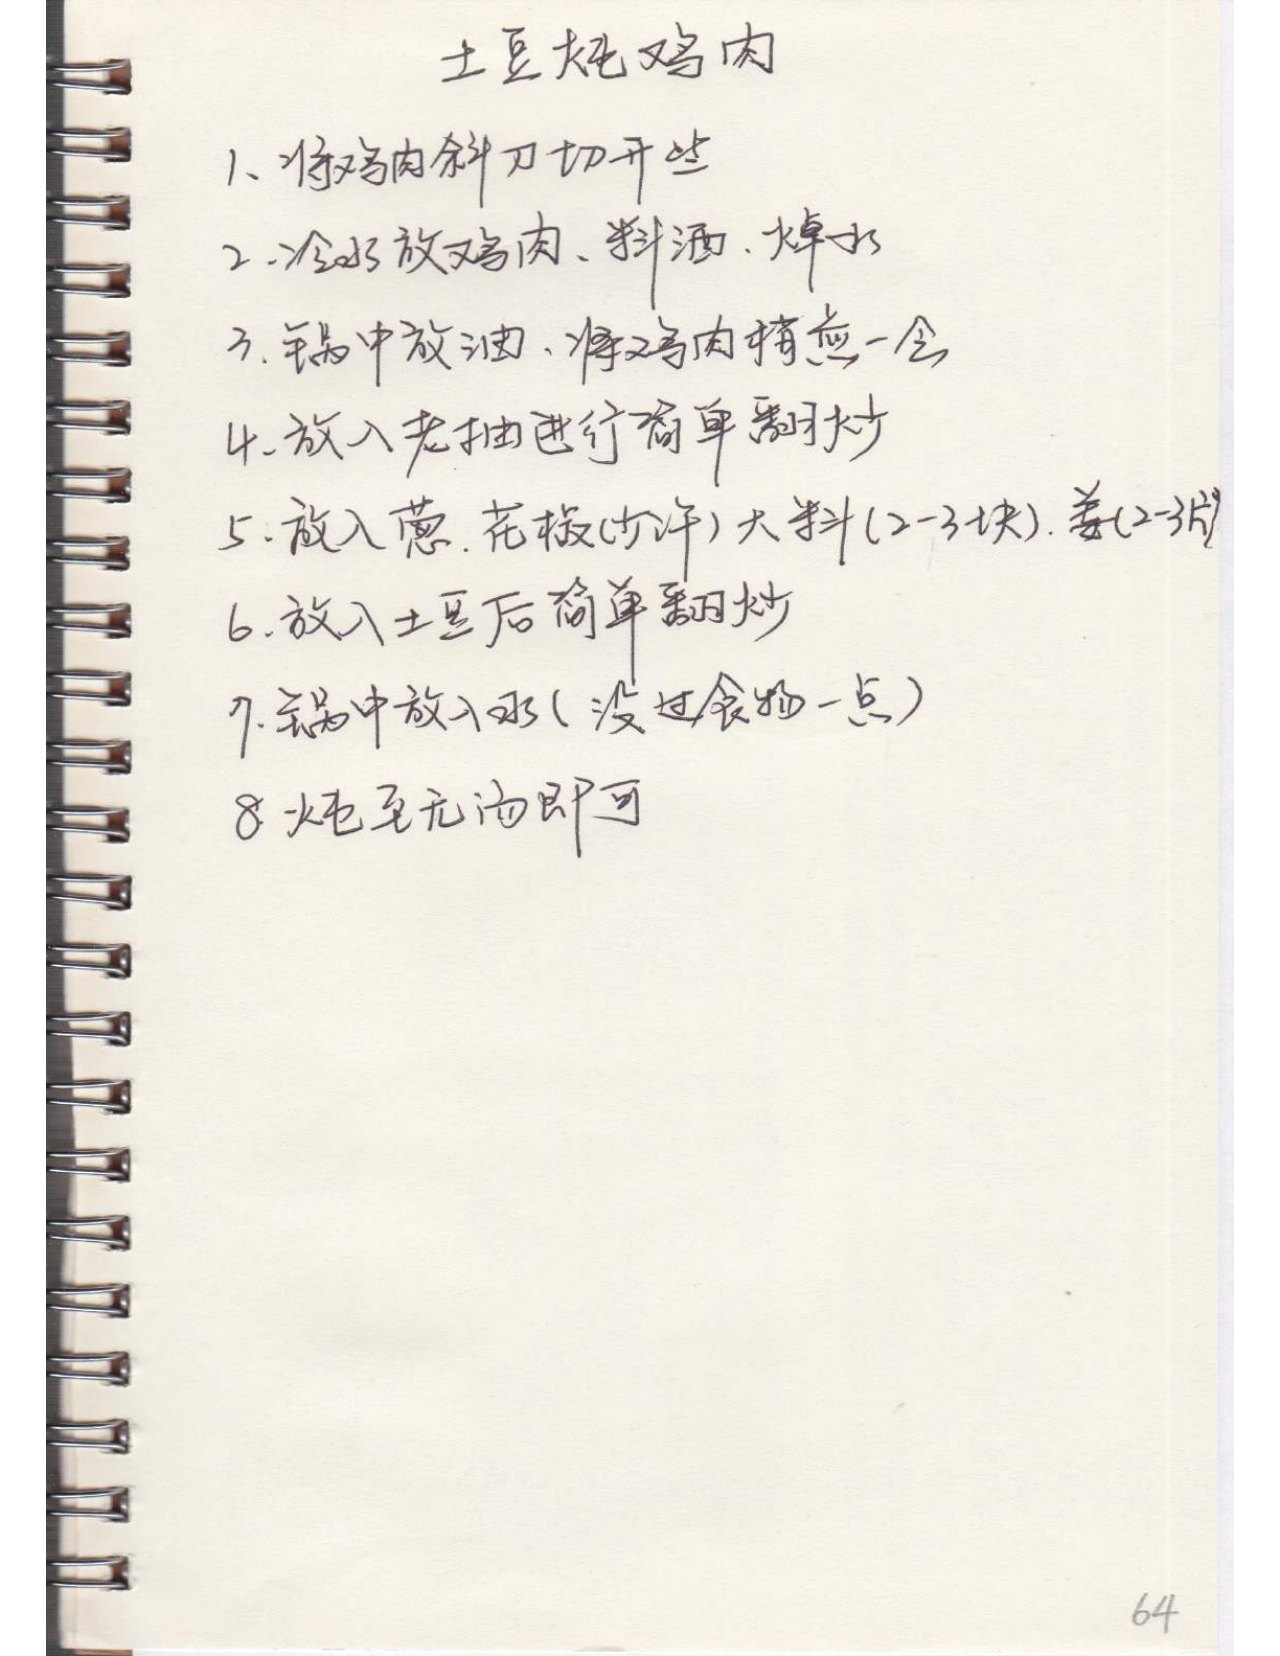 土豆炖鸡肉
1、将鸡肉斜刀切开些
2.冷水放鸡肉、料酒、焯水
3.锅中放油、将鸡肉稍煎一会
4.放入老抽进行简单翻炒
5.放入葱.花椒(少许)大料(2-3块).姜(2-3片)
6.放入土豆后简单翻炒
7.锅中放入水(没过食物一点)
8.炖至无汤即可
64